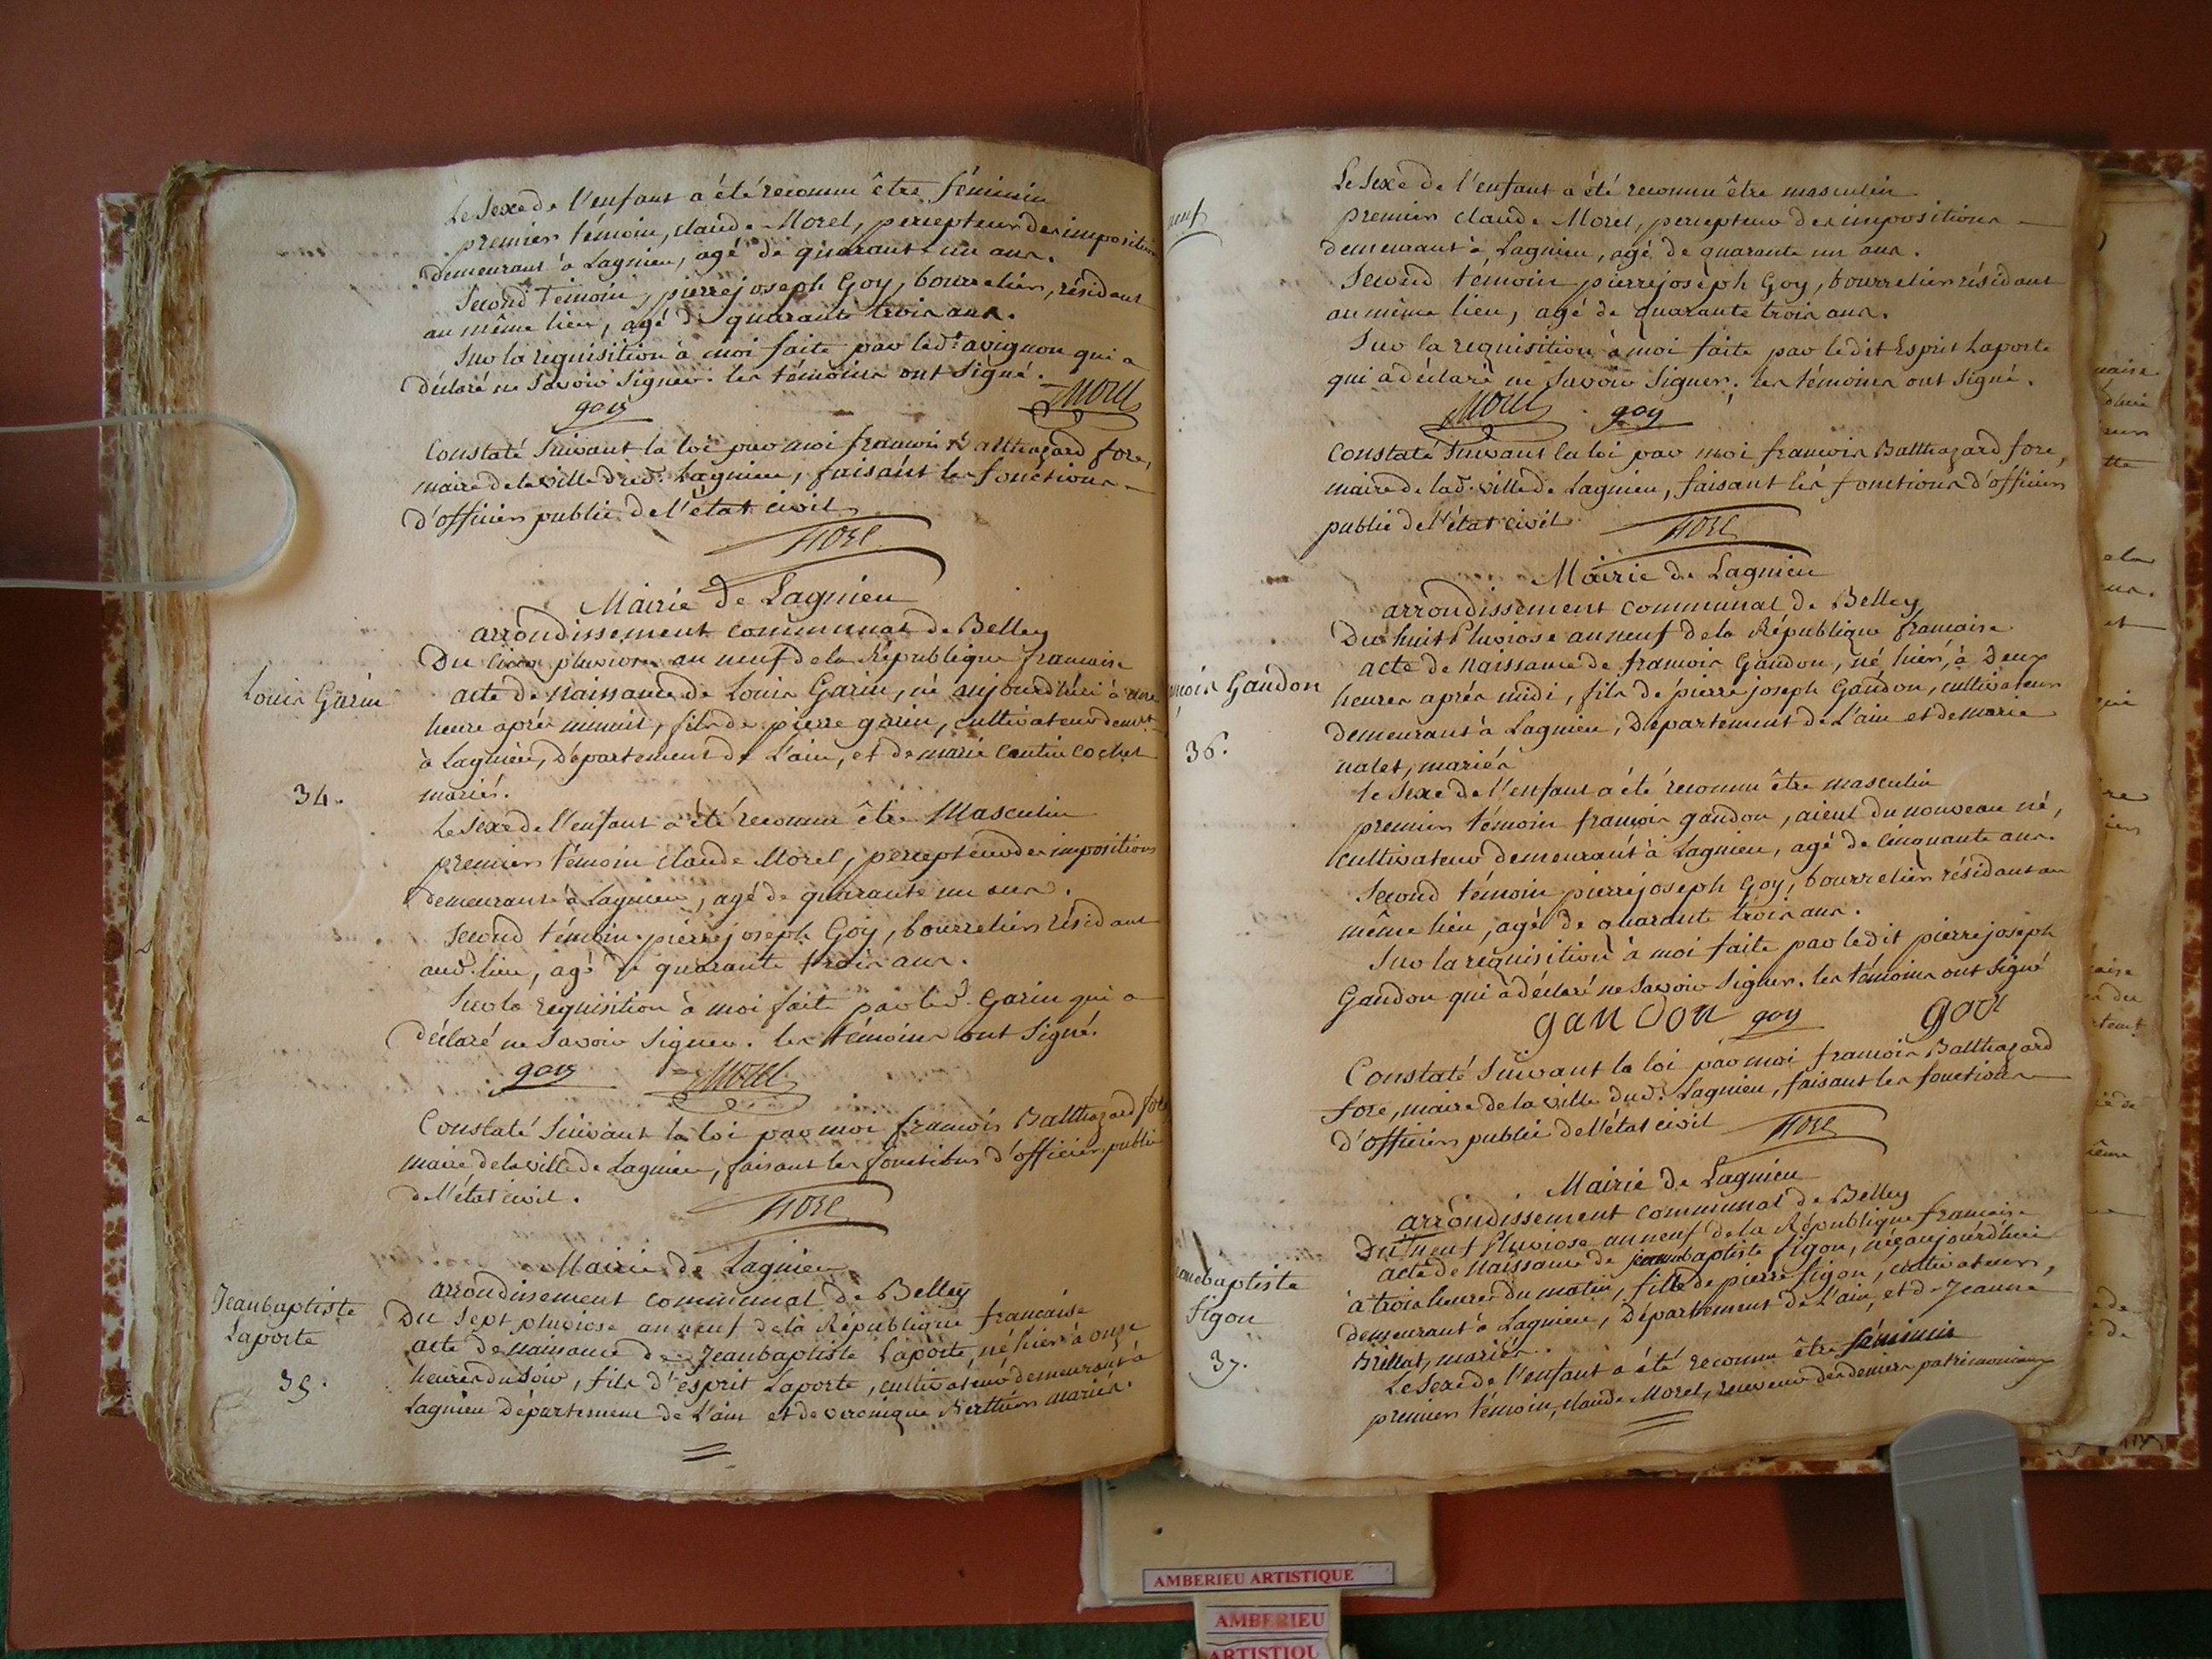 Le Sexe de l'enfant a été reconnu être féminin
premier témoin, claude Morel, percepteur des imposition
demeurant à Lagnieu, agé de quarant un ans.
Second témoin, pierrejoseph Goy, bourrelier, résidant
au même lieu, agé de quarante trois ans.
Sur la requisition à moi faite par led.t avignon qui a
déclaré ne Savoir Signer. les témoins ont Signé.
goy Morel
Constaté Suivant la loi par moi francois Balthazard fore,
maire de la ville dud. Lagnieu, faisant les fonctions
d'officier public de l'état civil
fore
Mairie de Lagnieu
arrondissement communal de Belley
Du pluviose an neuf de la République francaise
Louis Garin
acte de Naissance de Louis Garin, né aujourdhui à une
heure après minuit, fils de pierre garin, cultivateur demt
à Lagnieu, Département de L'ain, et de marie cochet
34.
mariés.
Le Sexe de l'enfant a été reconnu être Masculin
premier témoin claude Morel, percepteur des impositions
demeurant à Lagnieu, agé de quarante un ans.
Second témoin pierrejoseph Goy, bourrelier résidant
aud. lieu, agé de quarante trois ans.
Sur la requisition à moi fait par led. Garin qui a
déclaré ne Savoir Signer. les témoins ont Signé.
goy Morel
Constaté Suivant la loi par moi francois Balthazard fore
maire de la ville de Lagnieu, faisant les fonctions d'officier public
de l'état civil.
fore
Mairie de Lagnieu
arrondissement communal de Belley
Jeanbaptiste
Laporte
35.
Du Sept pluviose an neuf de la République francaise
acte de naissance de Jeanbaptiste Laporte, né hier à onze
heures du Soir, fils d'esprit Laporte, cultivateur demeurant à
Lagnieu Département de L'ain et de veronique Berthier mariés.
neuf
Le Sexe de l'enfant a été reconnu être masculin
premier claude Morel, percepteur des impositions
demeurant à Lagnieu, agé de quarante un ans.
Second témoin pierrejoseph Goy, bourrelier résidant
au même lieu, agé de quarante trois ans.
Sur la requisition à moi faite par ledit Esprit Laporte
qui a déclaré ne Savoir Signer. les témoins ont Signé.
Morel goy
Constaté Suivant la loi par moi francois Balthazard fore,
maire de lad. ville de Lagnieu, faisant les fonctions d'officier
public de l'état civil
fore
Mairie de Lagnieu
arrondissement communal de Belley
Du huit Pluviose an neuf de la République francaise
ncois Gaudon
36.
acte de Naissance de francois Gaudon, né hier, à Deux
heures après midi, fils de pierre joseph Gaudon, cultivateur
demeurant à Lagnieu, Département de L'ain et de marie
nalet, mariés
le Sexe de l'enfant a été reconnu être masculin
premier témoin francois gaudon, aieul du nouveau né,
cultivateur demeurant à Lagnieu, agé de cinquante ans.
Second témoin pierrejoseph Goy, bourrelier résidant au
même lieu, agé de quarante trois ans.
Sur la requisition à moi faite par ledit pierrejoseph
Gaudon qui a déclaré ne Savoir Signer. les témoins ont Signé
gaudon goy goy
Constaté Suivant la loi par moi francois Balthazard
fore, maire de la ville dud. Lagnieu, faisant les fonctions
d'officier public de l'état civil
fore
Mairie de Lagnieu
arrondissement communal de Belley
Du neuf Pluviose an neuf de la République francaise
anebaptiste
figon
37.
acte de Naissance de jeannebaptiste figon, née aujourdhui
à trois heures du matin, fille de pierre figon, cultivateur,
demeurant à Lagnieu, Département de L'ain, et de Jeanne
Brillat, mariés.
Le Sexe de l'enfant a été reconnu être féminin
premier témoin, claude Morel, receveur des deniers patrimoniaux
AMBERIEU ARTISTIQUE
AMBERIEU
ARTISTIQU